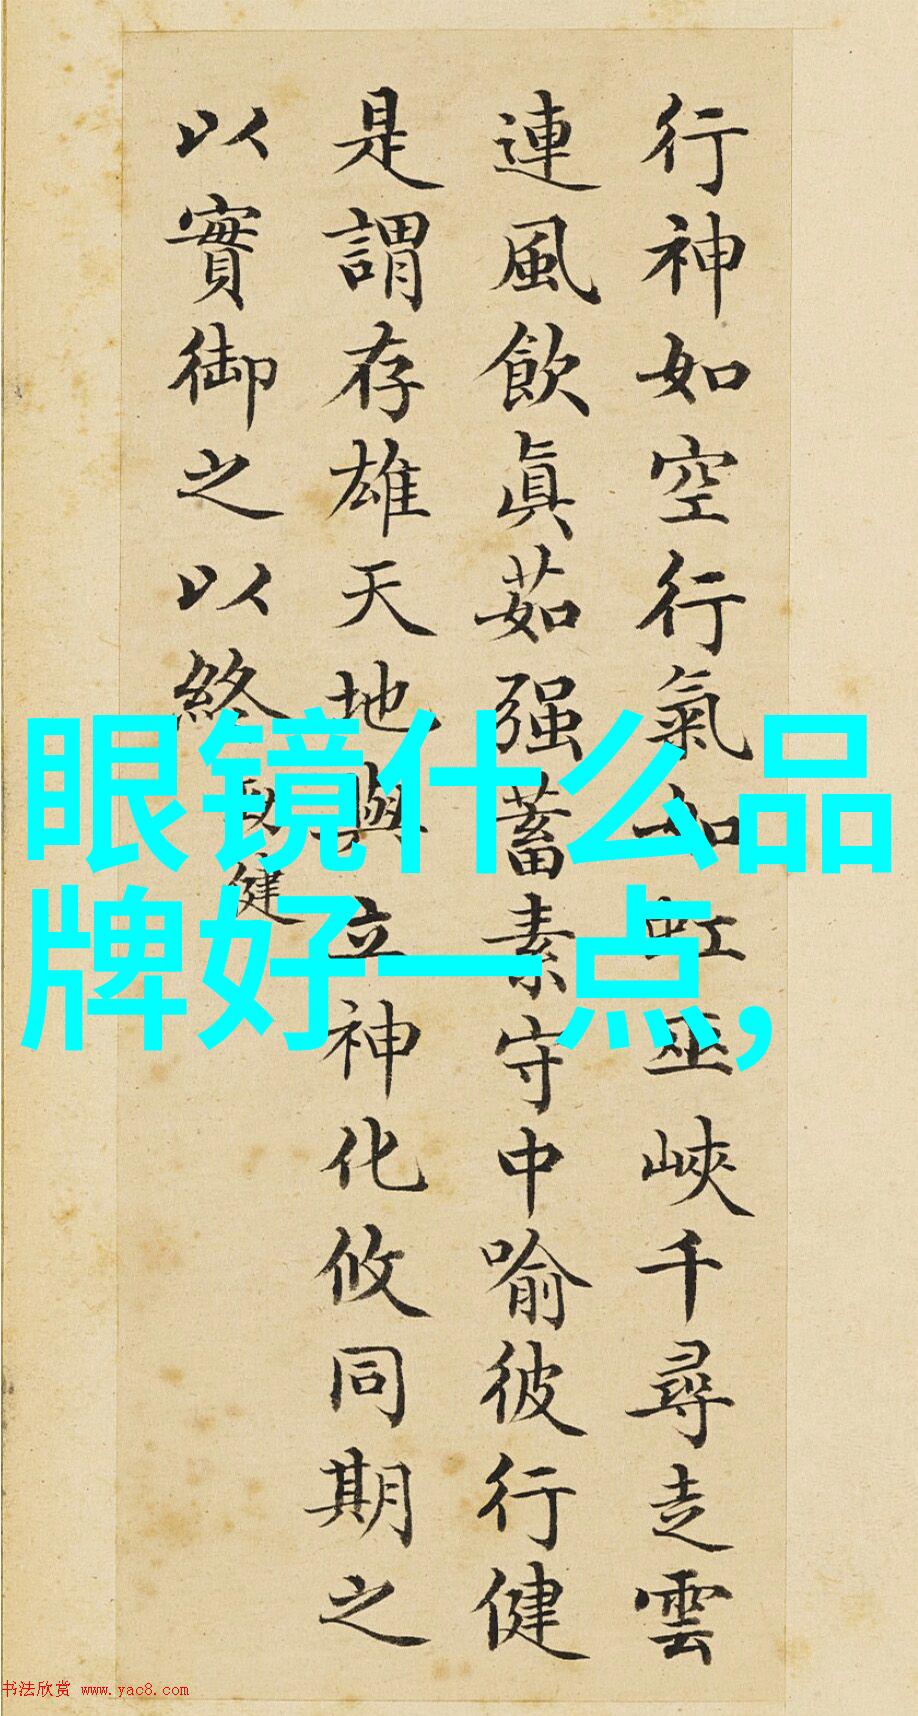 行神如空行氣如虹巫峽千尋走雲
連風飲眞茹强蓄素守中喻彼行健
是謂存雄天地與立神化攸同期之
以實御之以終
健
眼镜什么品
牌好一点,
书法欣赏 www.yac8.com